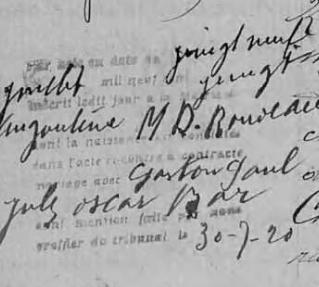 Par acte en date du vingt neuf
juillet mil neuf cent vingt
inscrit ledit jour à la Mairie
Angoulême M D. 
dont la naissance est
dans l'acte ci-contre a contracté
mariage avec Gaston Paul
Jules Oscar Bar
dont mention faite par nous
greffier du tribunal le 30-7-20